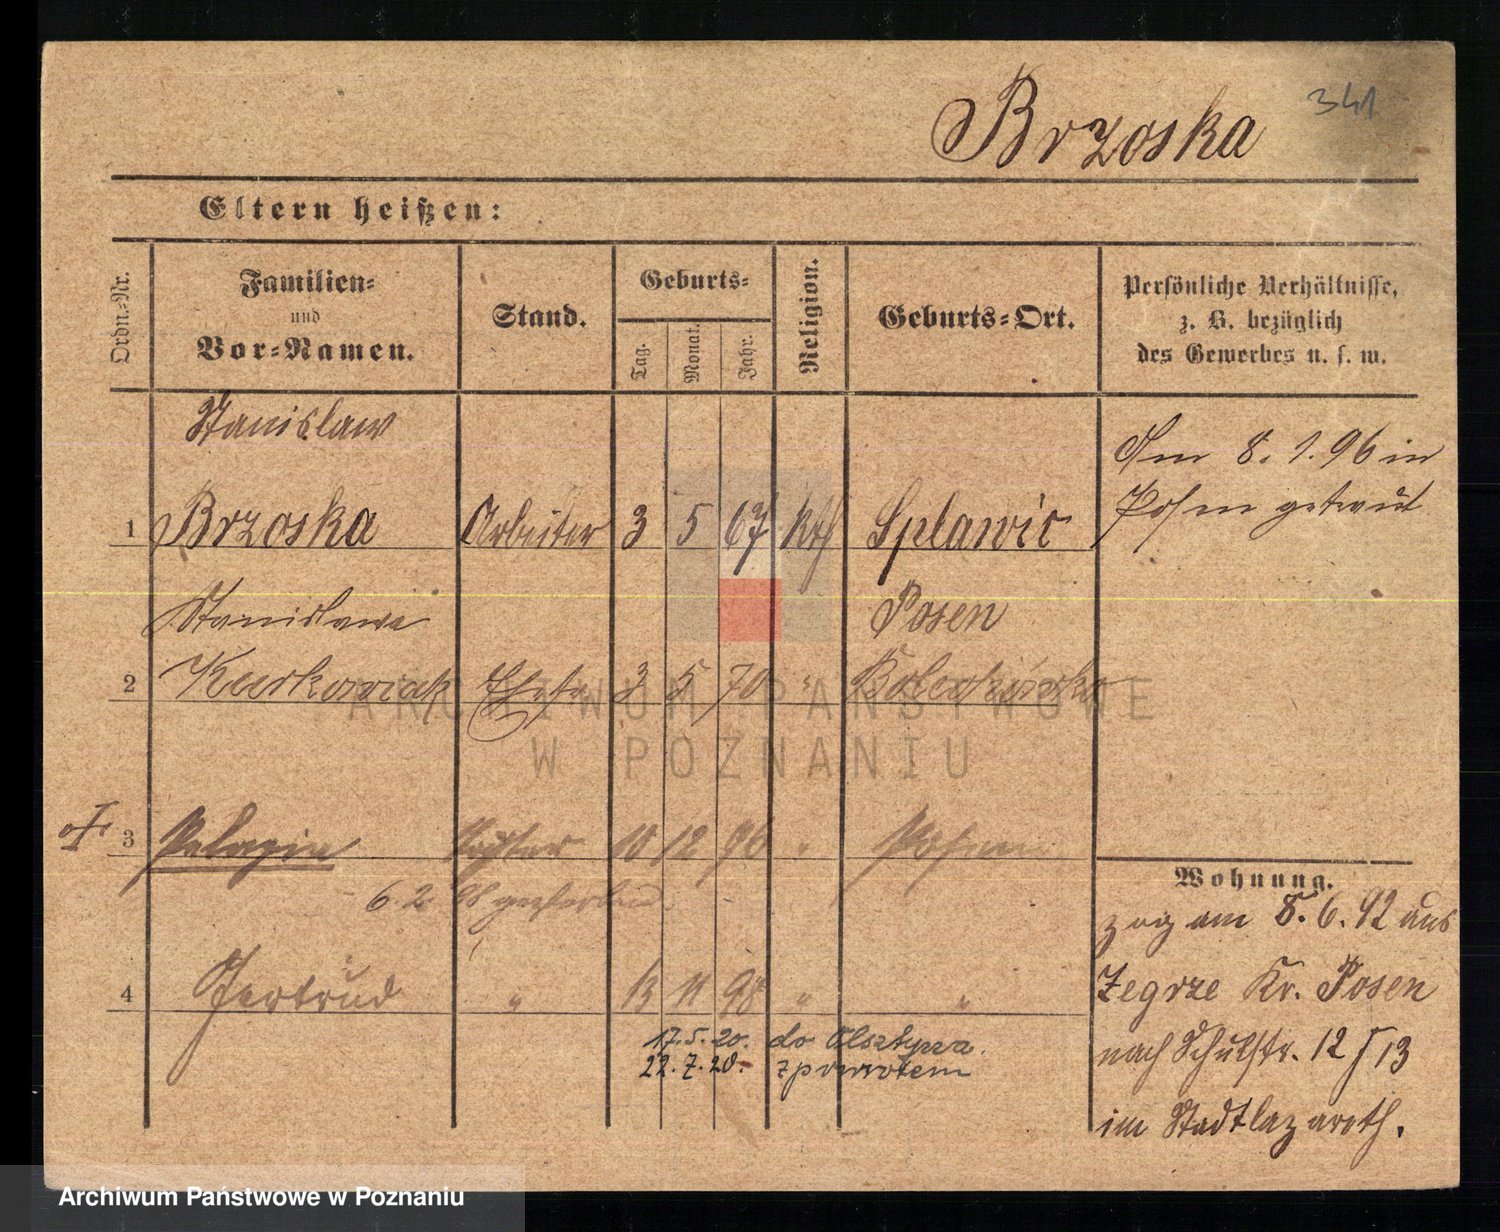 Brzoska
341
Eltern heißen:
Ordn.-Nr.
Familien-
und
Vor-Namen.
Stand.
Geburts-
Tag.
Monat.
Jahr.
Religion.
Geburts-Ort.
Persönliche Verhältnisse,
z. B. bezüglich
des Gewerbes u. s. w.
Stanislaw
1 Brzoska Arbeiter 3 5 67 kth Splawie
Am 8. 1. 96 in
Posen getraut
Stanislawa Posen
2 Kurkowiak Ehefr 3 5 70 "
3 Pelagia Tochter 10 12 96 " Posen
6 2 98 gestorben
4 Gertrud " 13 11 98 " "
17.5.20. do Olsztyna.
22.7.20. z powrotem
Wohnung.
zog am 8.6.92 aus
Zegrze Kr. Posen
nach Schulstr. 12/13
im Stadtlazareth.
ARCHIWUM PAŃSTWOWE
W POZNANIU
Archiwum Państwowe w Poznaniu